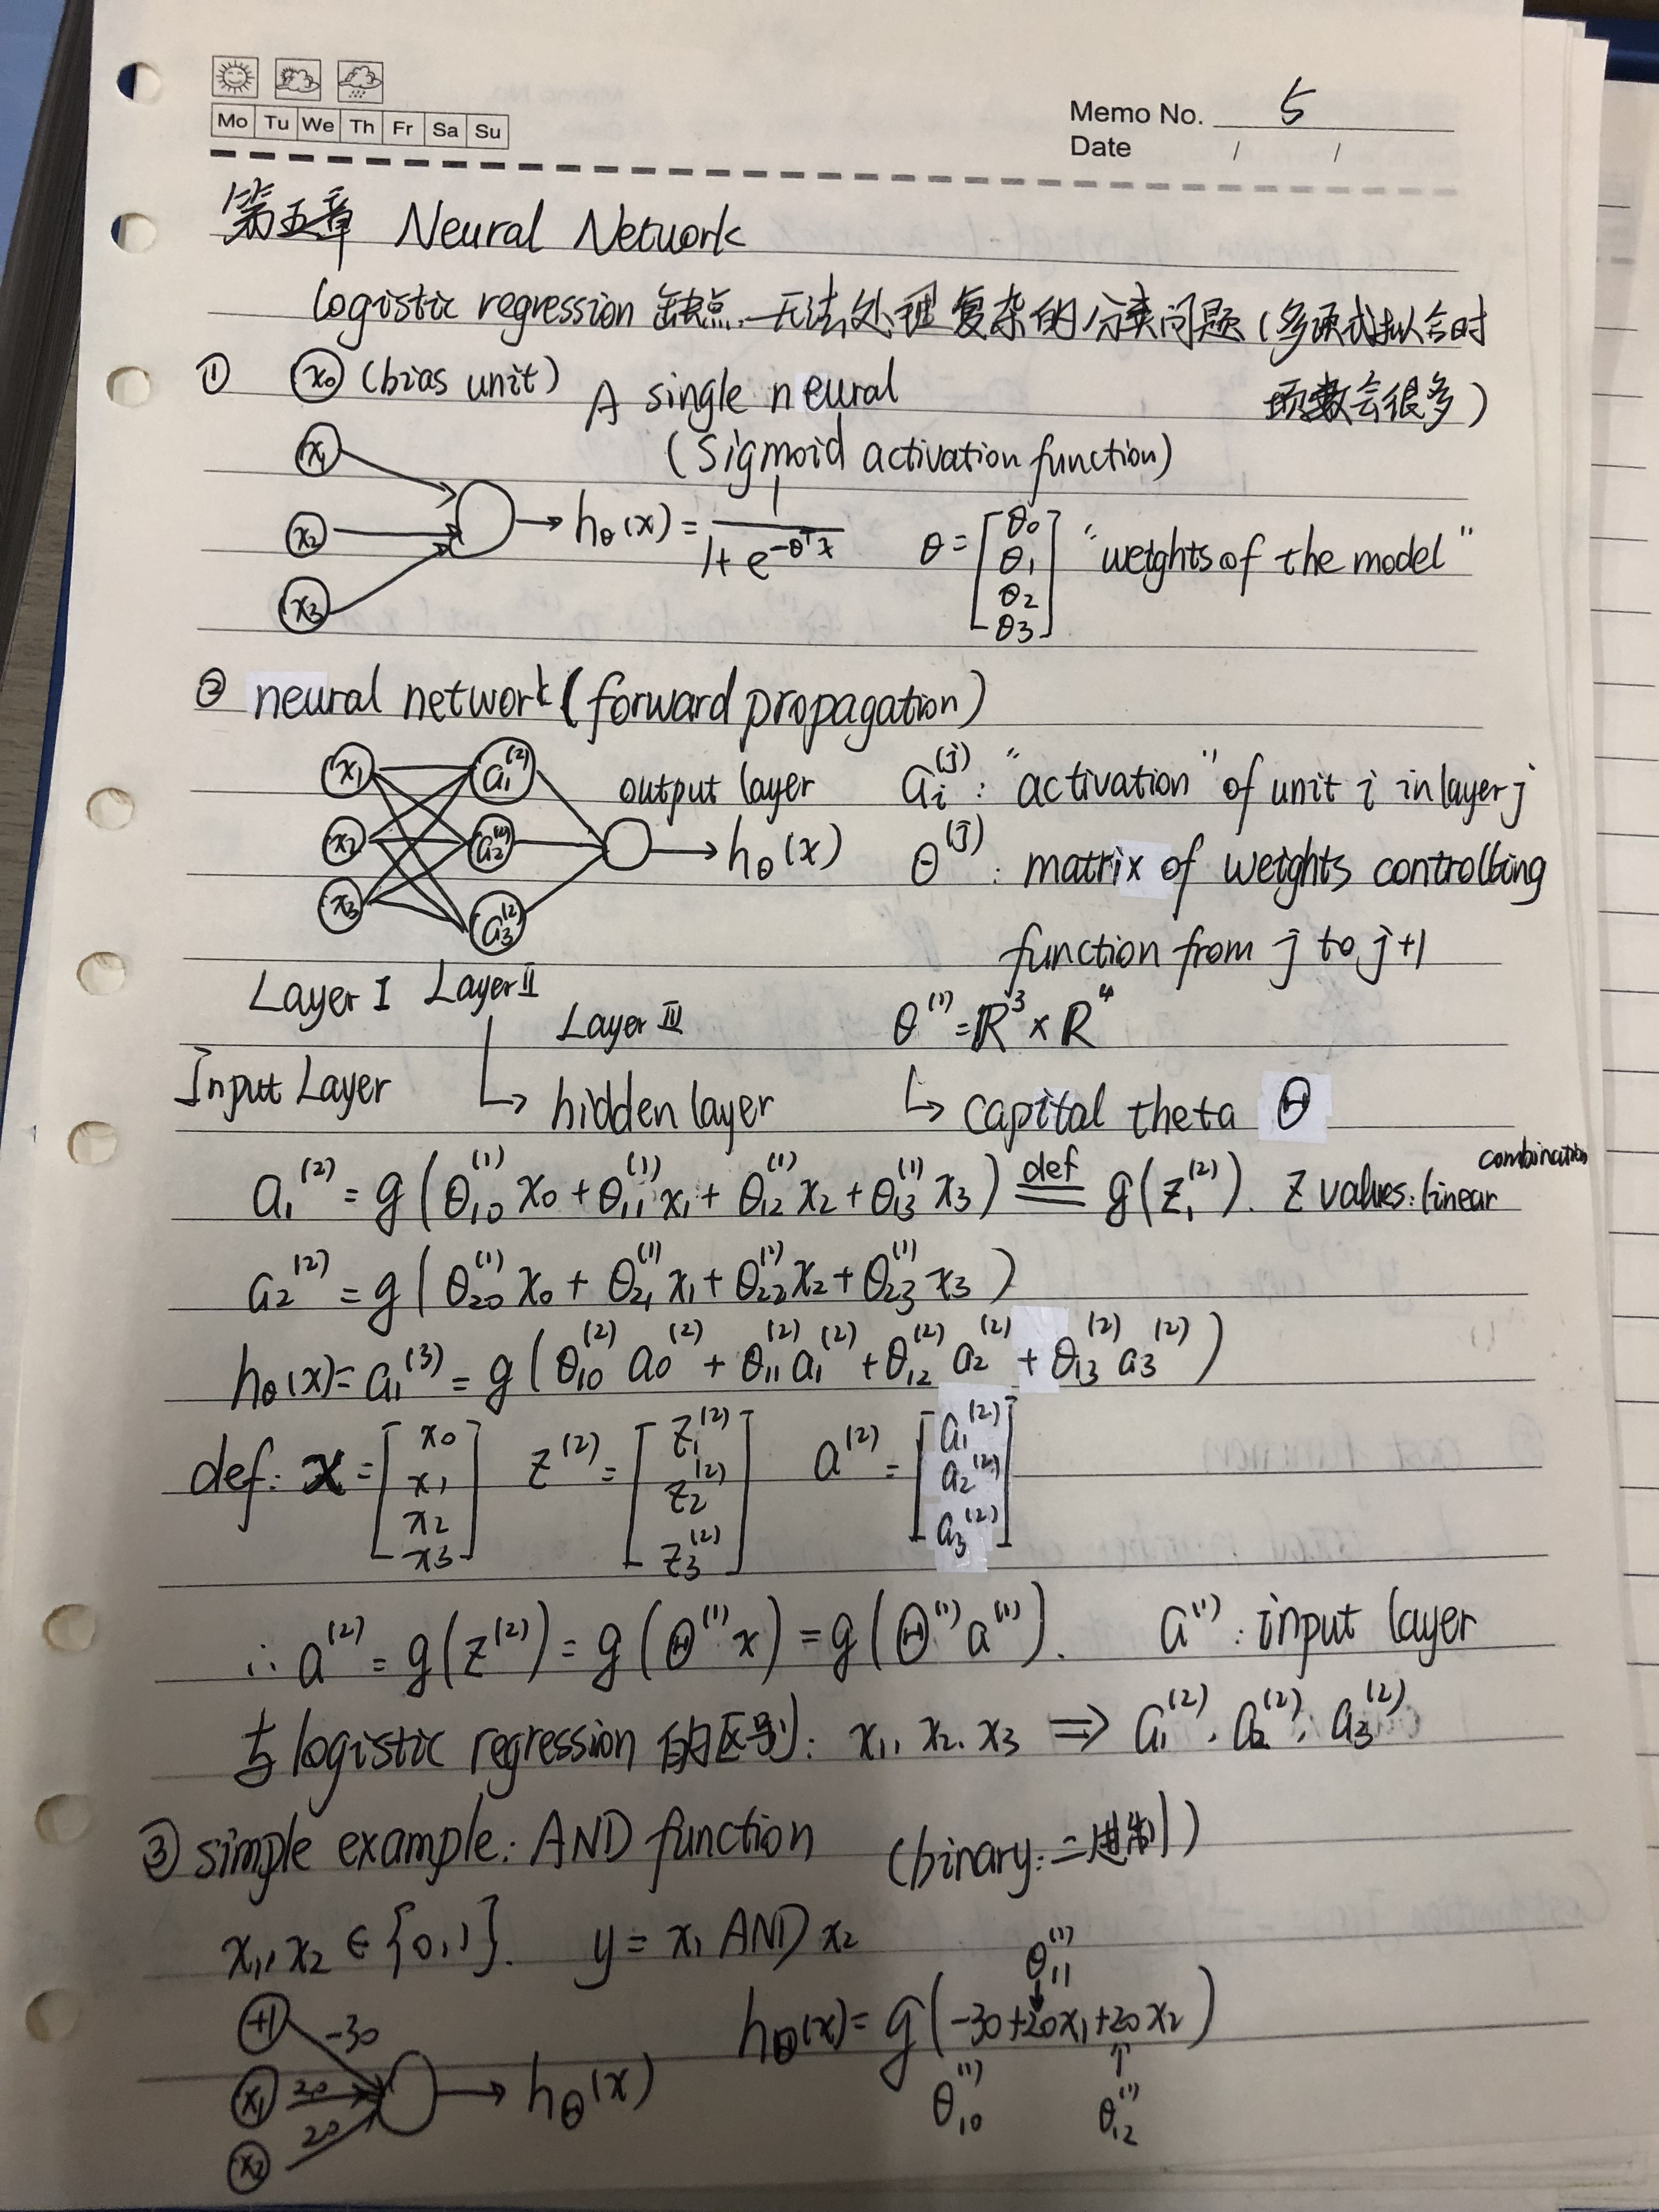 Mo Tu We Th Fr Sa Su
Memo No. 5
Date / /
第五章 Neural Network
logistic regression 缺点 无法处理复杂的分类问题 (多项式拟合时
项数会很多)
① x0 (bias unit) A single neural
(Sigmoid activation function)
x1
x2
x3
→ hθ(x) = 1 / (1+e^(-θ^T x)) θ = [θ0 θ1 θ2 θ3] "weights of the model"
② neural network (forward propagation)
x1 a1^(2) output layer ai^(j) : "activation" of unit i in layer j
x2 a2^(2) → hθ(x) θ^(j) : matrix of weights controlling
x3 a3^(2) function from j to j+1
Layer I Layer II Layer III θ^(1) = ℝ^3 × ℝ^4
Input Layer ↳ hidden layer ↳ capital theta Θ
a1^(2) = g(θ10^(1) x0 + θ11^(1) x1 + θ12^(1) x2 + θ13^(1) x3) ≝ g(z1^(2)). z values: linear combination
a2^(2) = g(θ20^(1) x0 + θ21^(1) x1 + θ22^(1) x2 + θ23^(1) x3)
hθ(x) = a1^(3) = g(θ10^(2) a0^(2) + θ11^(2) a1^(2) + θ12^(2) a2^(2) + θ13^(2) a3^(2))
def: x = [x0 x1 x2 x3] z^(2) = [z1^(2) z2^(2) z3^(2)] a^(2) = [a1^(2) a2^(2) a3^(2)]
∴ a^(2) = g(z^(2)) = g(Θ^(1) x) = g(Θ^(1) a^(1)). a^(1) : input layer
与 logistic regression 的区别: x1, x2. x3 ⇒ a1^(2), a2^(2), a3^(2)
③ simple example: AND function (binary: 二进制)
x1, x2 ∈ {0,1}. y = x1 AND x2
θ11^(1)
+1 -30 hΘ(x) = g(-30+20x1+20x2)
x1 20 → hΘ(x) θ10^(1) θ12^(1)
x2 20